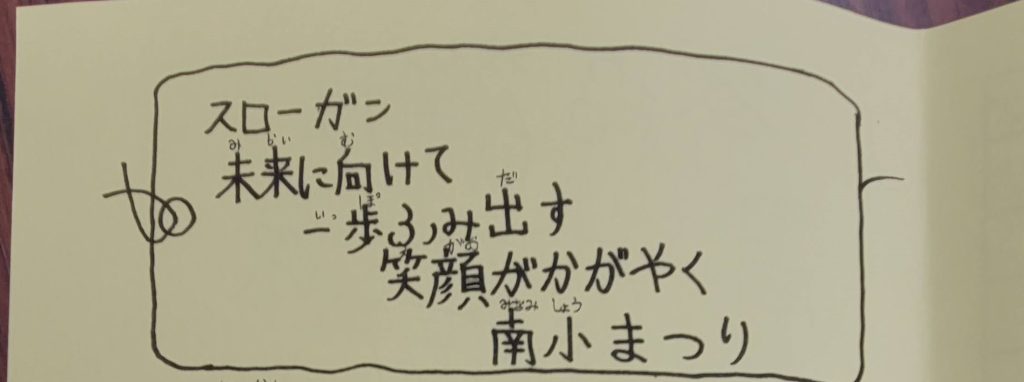 スローガン
未来に向けて
一歩ふみ出す
笑顔がかがやく
南小まつり